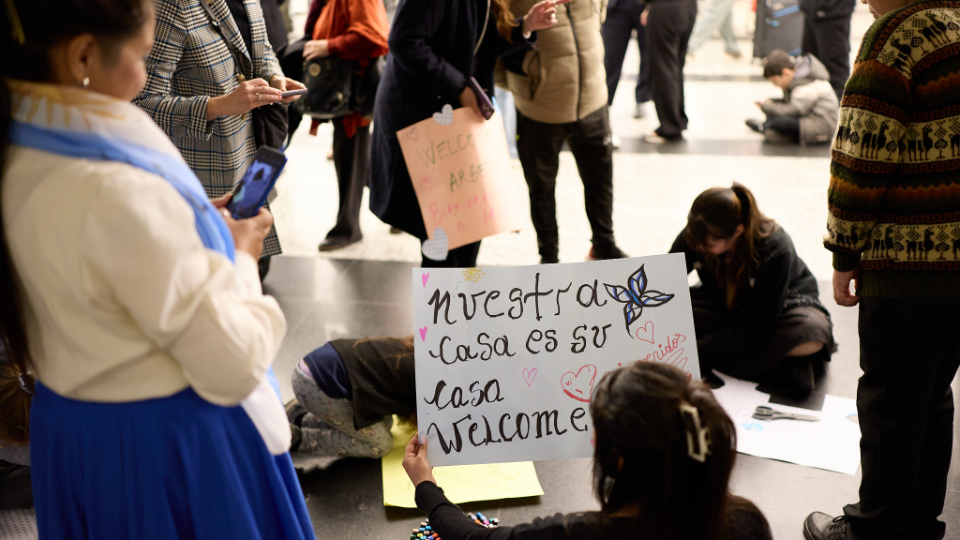 WELCO
ARGE
Bienven
nuestra
casa es su
casa
Welcome